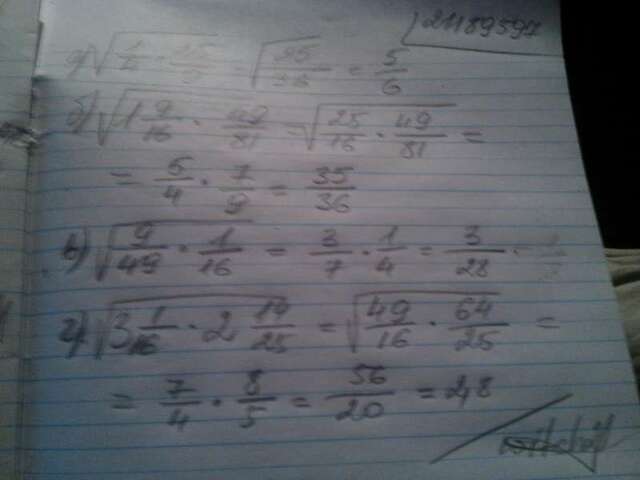 21189597
а) √ = √ = 5/6
б) √(1 9/16 · 49/81) = √(25/16 · 49/81) =
= 5/4 · 7/9 = 35/36
в) √(9/49 · 1/16) = 3/7 · 1/4 = 3/28
г) √(3 1/16 · 2 14/25) = √(49/16 · 64/25) =
= 7/4 · 8/5 = 56/20 = 2,8